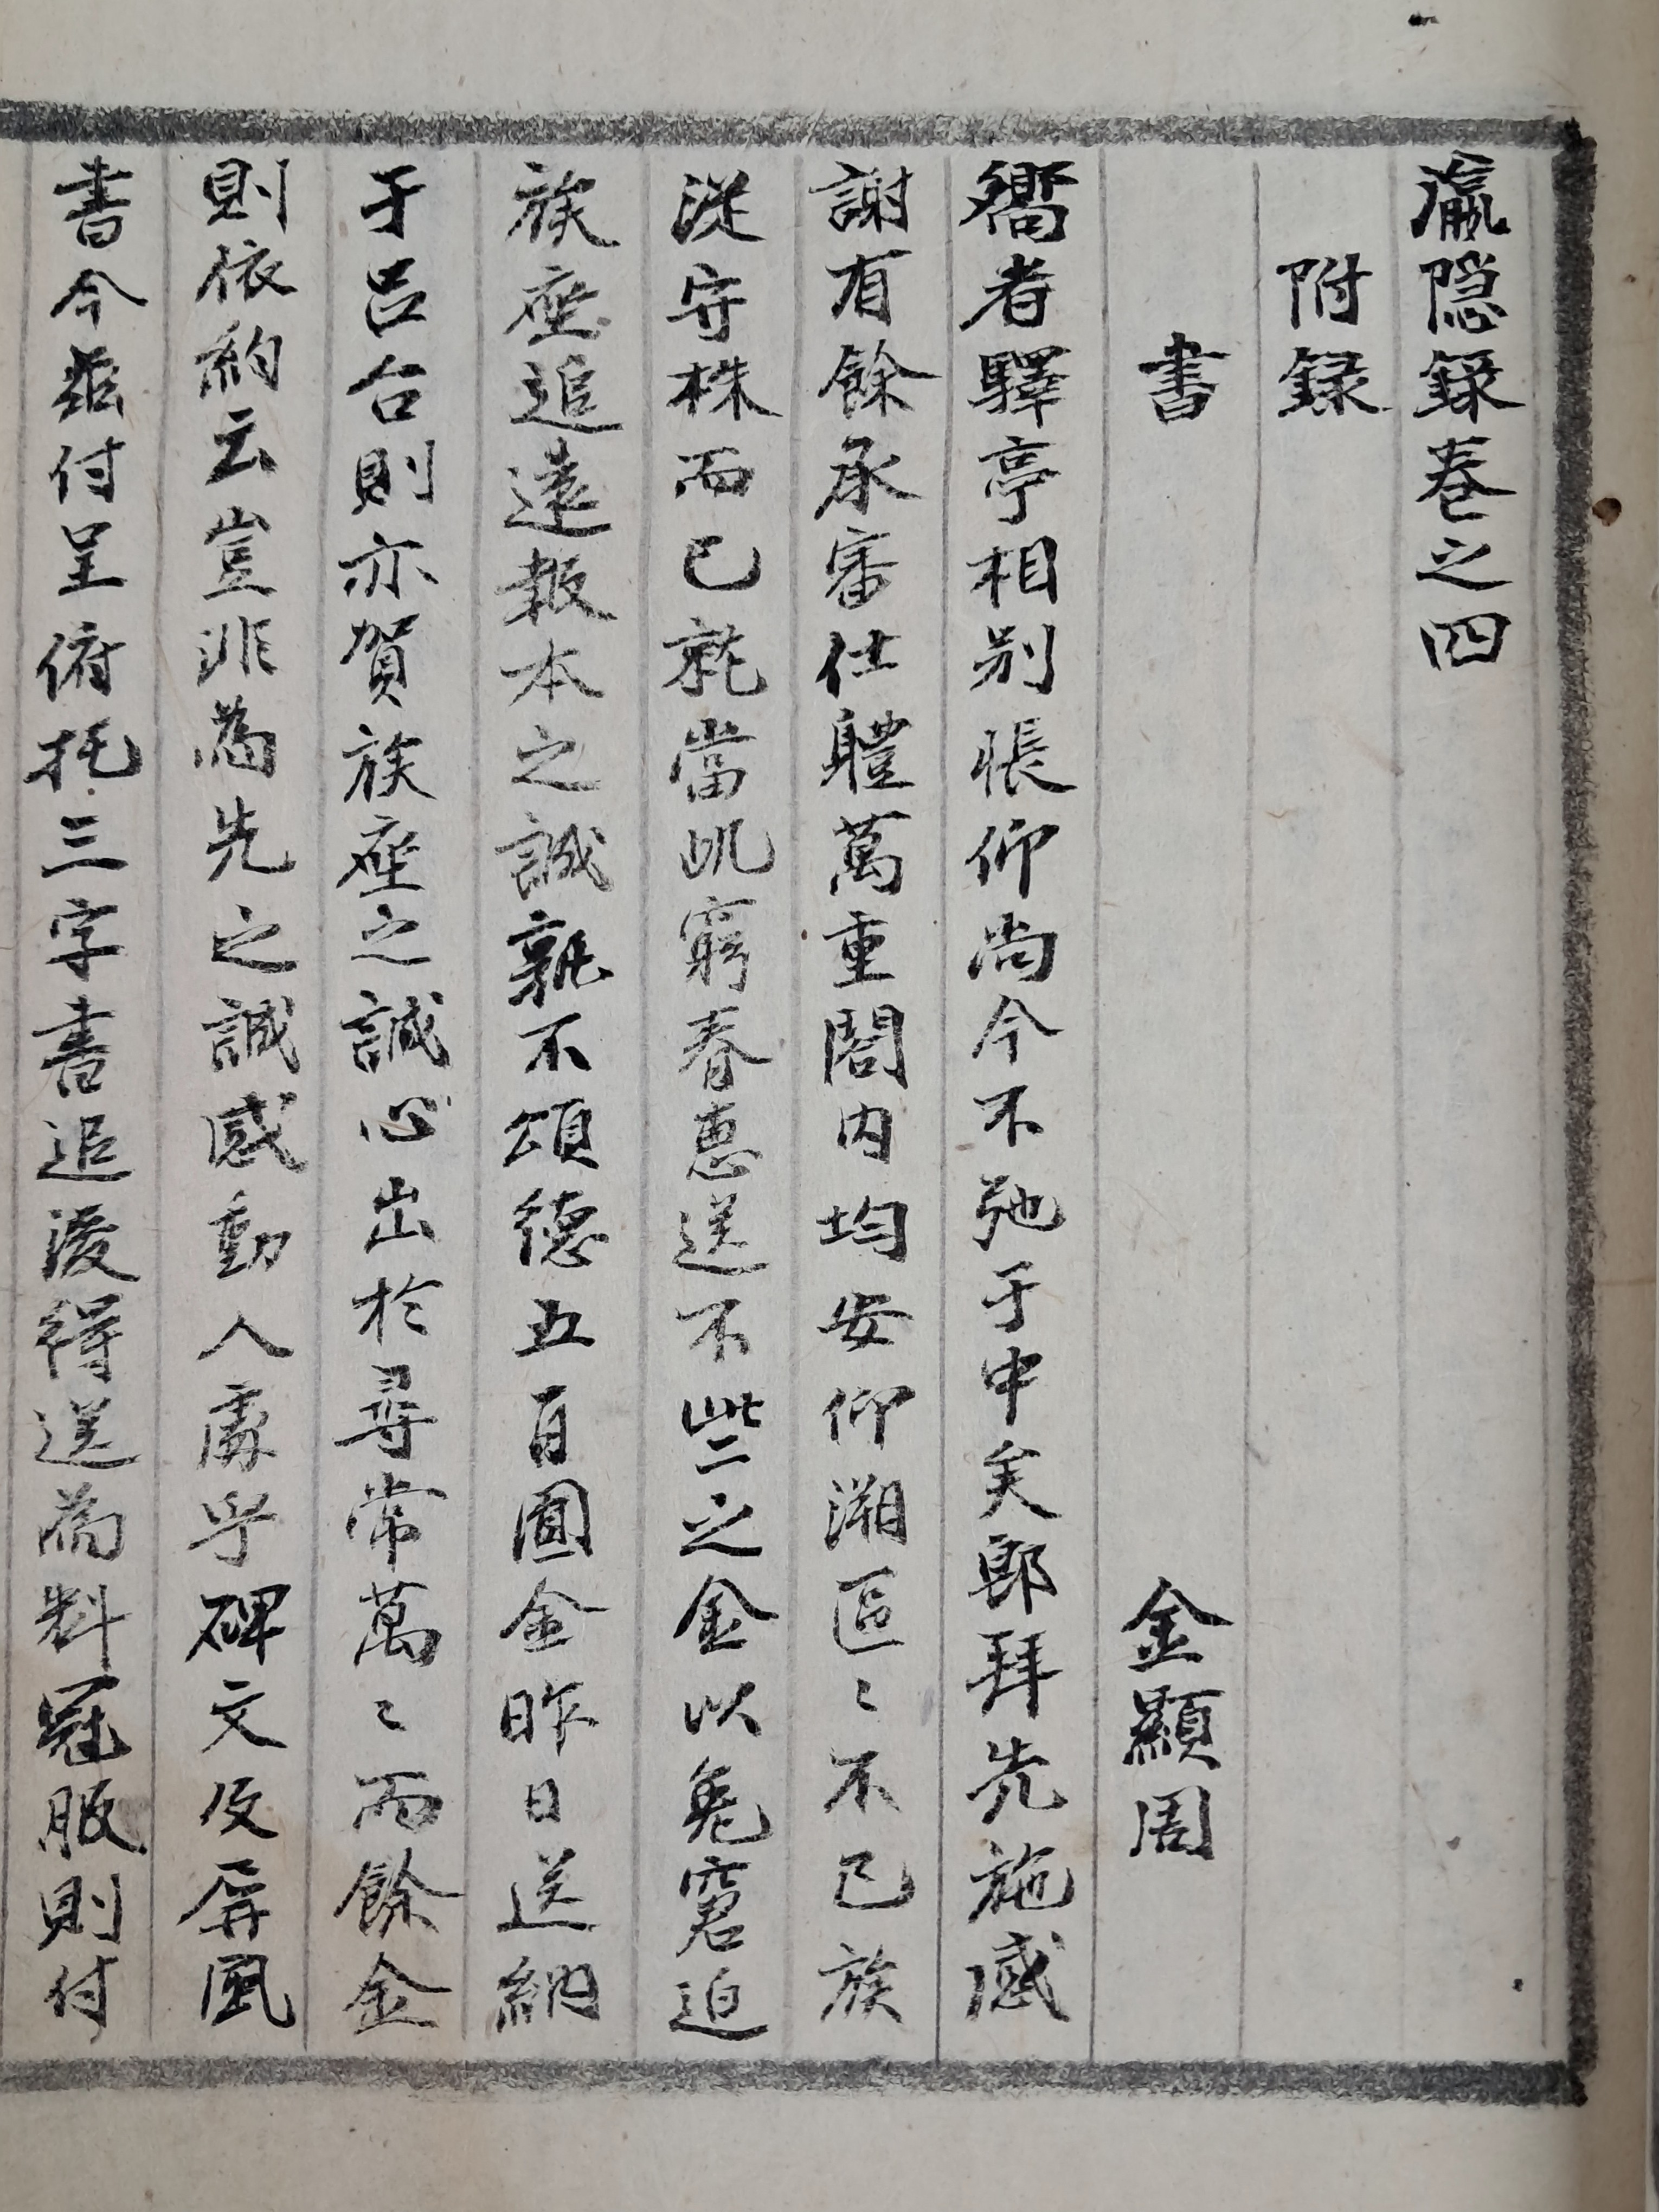 瀛隐錄卷之四
附録
書 金顯周
嚮者驛亭相別悵仰尚今不弛于中矣郎拜先施感
謝有餘承審仕軆萬重閤内均安仰溯區〻不已族
從守株而已就當此窮春惠送不些之金以免窘迫
族座追遠報本之誠孰不頌德五百圓金昨日送納
于呂台則亦賀族座之誠心出於尋常萬〻而餘金
則依約云豈非為先之誠感動人處乎碑文及屏風
書今玆付呈俯托三字書追後得送為料冠服則付